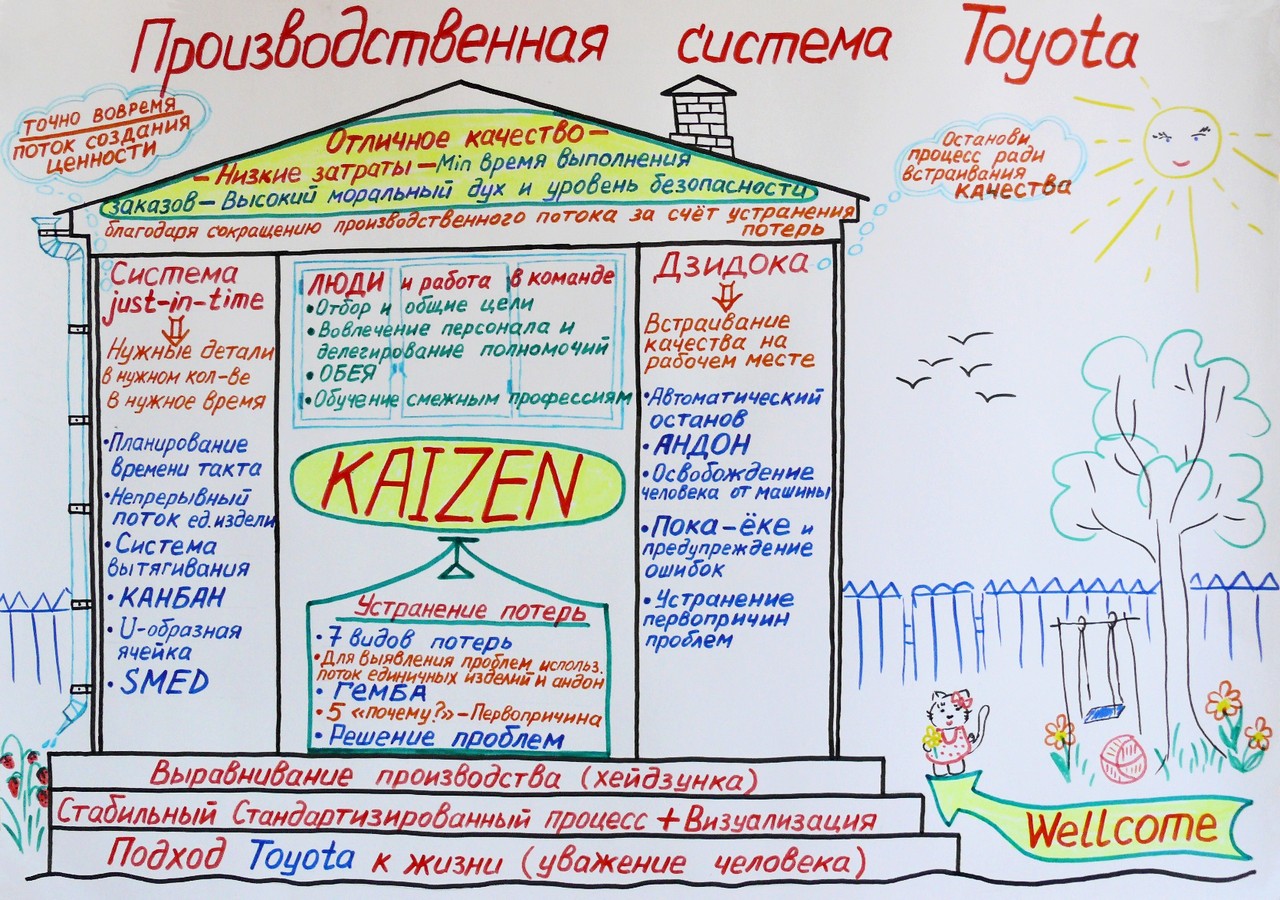 Производственная система Toyota
точно вовремя
поток создания
ценности
Останови
процесс ради
встраивания
качества
Отличное качество –
– Низкие затраты – Min время выполнения
заказов – Высокий моральный дух и уровень безопасности
благодаря сокращению производственного потока за счёт устранения
потерь
Система
just-in-time
Нужные детали
в нужном кол-ве
в нужное время
•Планирование
времени такта
•Непрерывный
поток ед.издели
•Система
вытягивания
•КАНБАН
•U-образная
ячейка
•SMED
ЛЮДИ и работа в команде
•Отбор и общие цели
•Вовлечение персонала и
делегирование полномочий
•ОБЕЯ
•Обучение смежным профессиям
KAIZEN
Устранение потерь
•7 видов потерь
•Для выявления проблем использ.
поток единичных изделий и андон
•Гемба
•5 «почему?» – Первопричина
•Решение проблем
Дзидока
Встраивание
качества на
рабочем месте
•Автоматический
останов
•АНДОН
•Освобождение
человека от машины
•Пока-ёке и
предупреждение
ошибок
•Устранение
первопричин
проблем
Выравнивание производства (хейдзунка)
Стабильный Стандартизированный процесс + Визуализация
Подход Toyota к жизни (уважение человека)
Wellcome